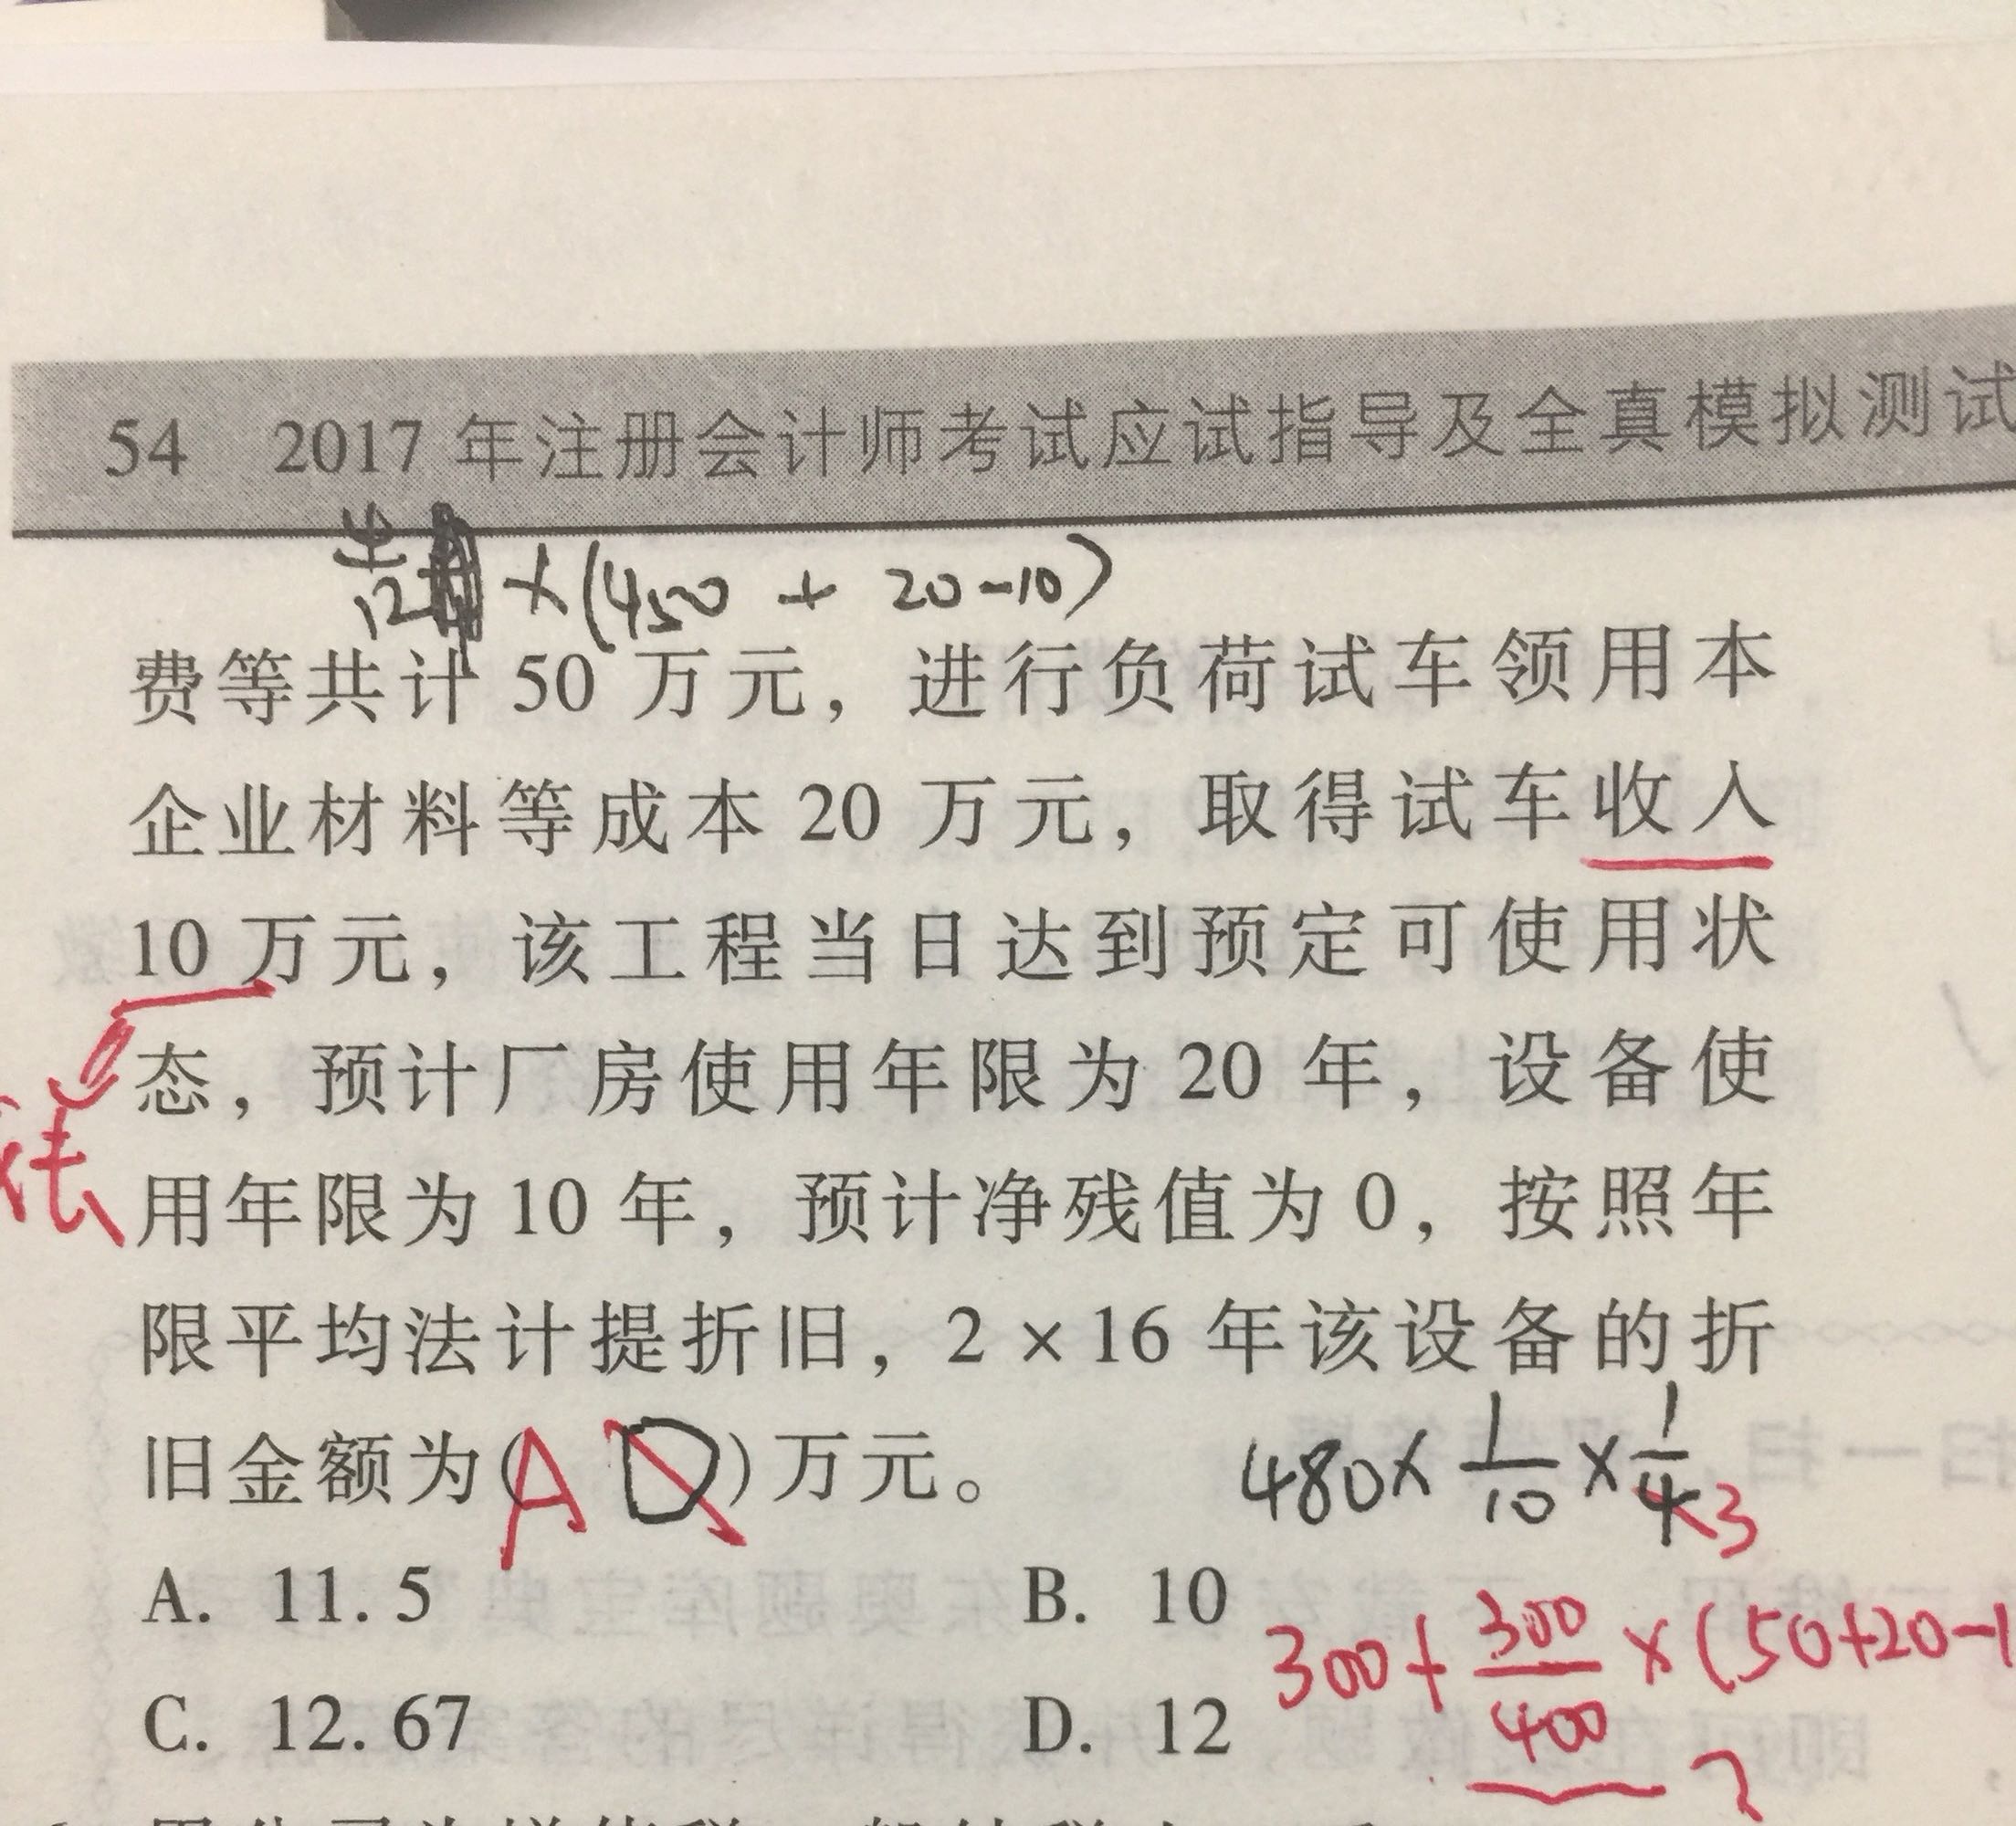 54 2017 年注册会计师考试应试指导及全真模拟测试
12 × (450 + 20-10)
费等共计 50 万元，进行负荷试车领用本
企业材料等成本 20 万元，取得试车收入
10 万元，该工程当日达到预定可使用状
态，预计厂房使用年限为 20 年，设备使
用年限为 10 年，预计净残值为 0，按照年
限平均法计提折旧，2 × 16 年该设备的折
旧金额为(A D)万元。
480× 1/10 × 1/4 3
A. 11. 5 B. 10
300+ 300/400 ×(50+20-1
C. 12. 67 D. 12
?